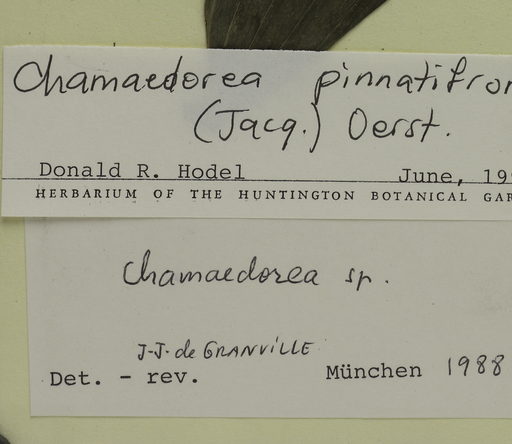 Chamaedorea pinnatifron
(Jacq.) Oerst.
Donald R. Hodel June, 19
HERBARIUM OF THE HUNTINGTON BOTANICAL GAR
Chamaedorea sp.
J-J. de GRANVILLE
Det. - rev. München 1988